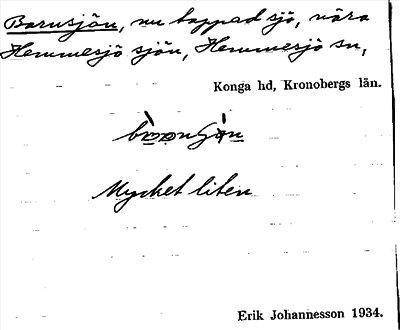 Barnsjön, nu tappad sjö, nära
Hemmesjö sjön, Hemmesjö sn,
Konga hd, Kronobergs län.
Mycket liten
Erik Johannesson 1934.